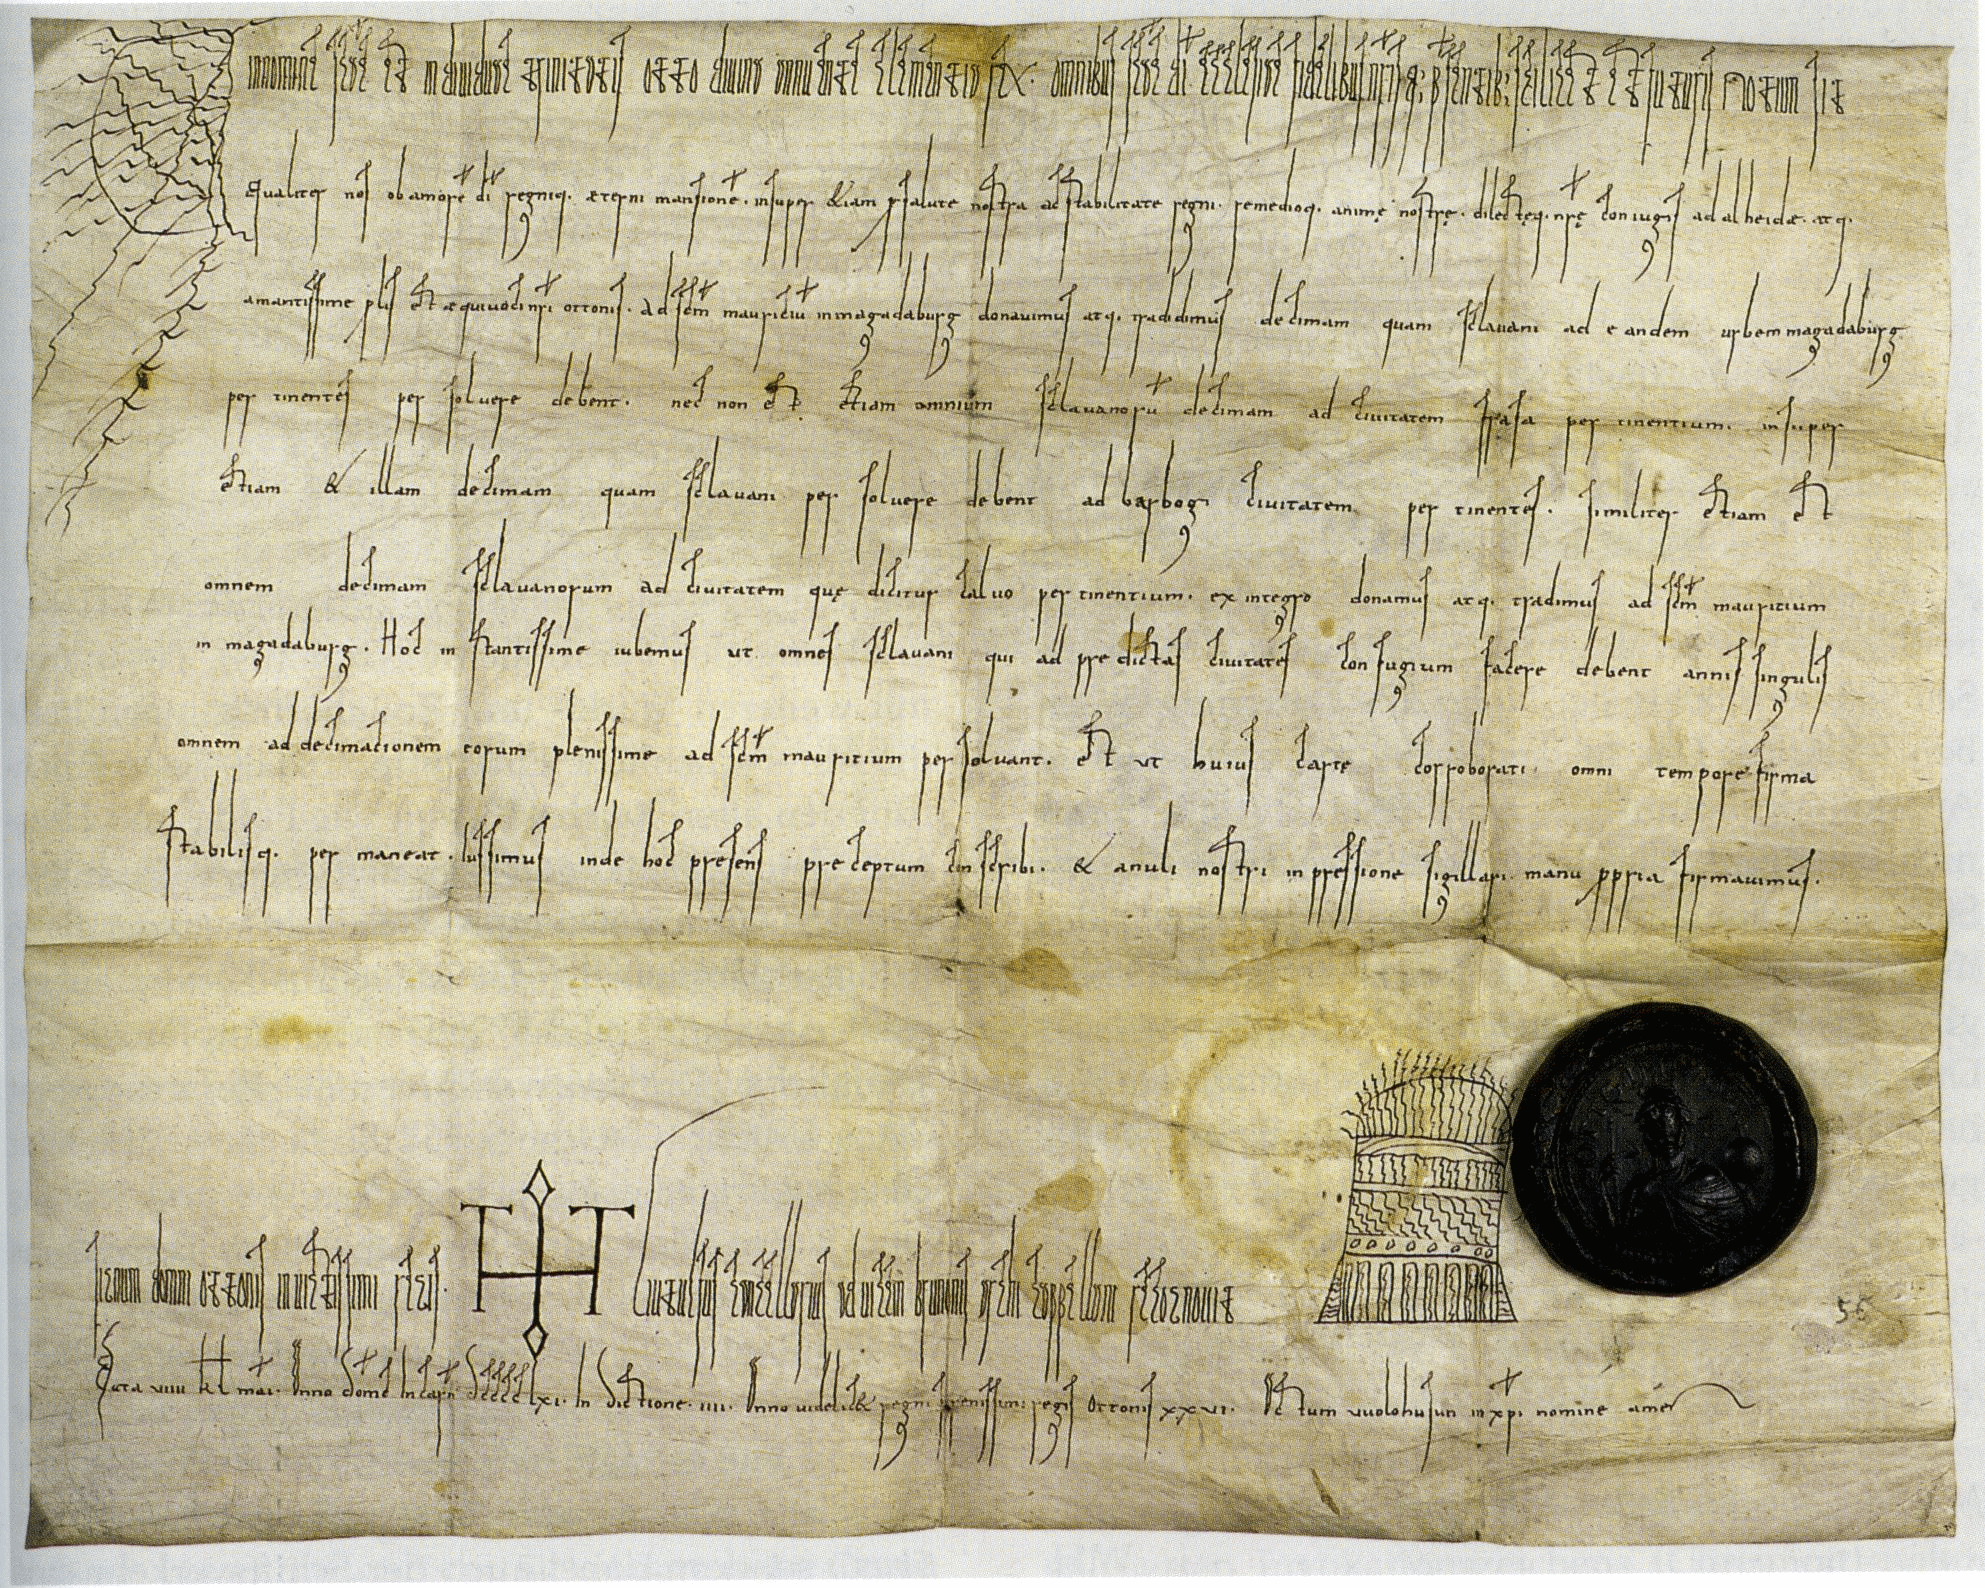 In nomine scae et individuae trinitatis otto divina annuente clementia rex. omnibus scae di aecclesiae fidelibus nris q; psentib; scilicet et futuris notum sit
qualiter nos ob amore di regniq. aeterni mansione. insuper &iam p salute nostra ac stabilitate regni. remedioq. animę nostrę. dilectęq. nrę coniugis adalheidæ. atq.
amantissime plis et æquivoci nri ottonis. ad scm mauriciu in magadaburg donavimus atq. tradidimus decimam quam sclavani ad eandem urbem magadaburg
pertinentes persolvere debent. nec non et etiam omnium sclavanoru decimam ad civitatem frasa pertinentium. insuper
etiam & illam decimam quam sclavani persolvere debent ad barbogi civitatem pertinentes. similiter etiam et
omnem decimam sclavanorum ad civitatem quę dicitur calvo pertinentium. ex integro donamus atq. tradimus ad scm mauritium
in magadaburg. Hoc instantissime iubemus ut omnes sclavani qui ad predictas civitates confugium facere debent annis singulis
omnem addecimacionem eorum plenissime ad scm mauritium persolvant. Et ut huius cartę corroborati omni tempore firma
stabilisq. permaneat. Iussimus inde hoc presens preceptum conscribi. & anuli nostri inpressione sigillari. manu ppria firmavimus.
Signum domni ottonis invictissimi regis. Liutulfus cancellarius ad vicem brunonis archicappellani recognovit
Data viiii kl mai. Anno domc incarn dcccclxi. Indictione. iiii. Anno videlic& regni serenissimi regis Ottonis xxvi. Actum vvalahusun in xpi nomine amen
56